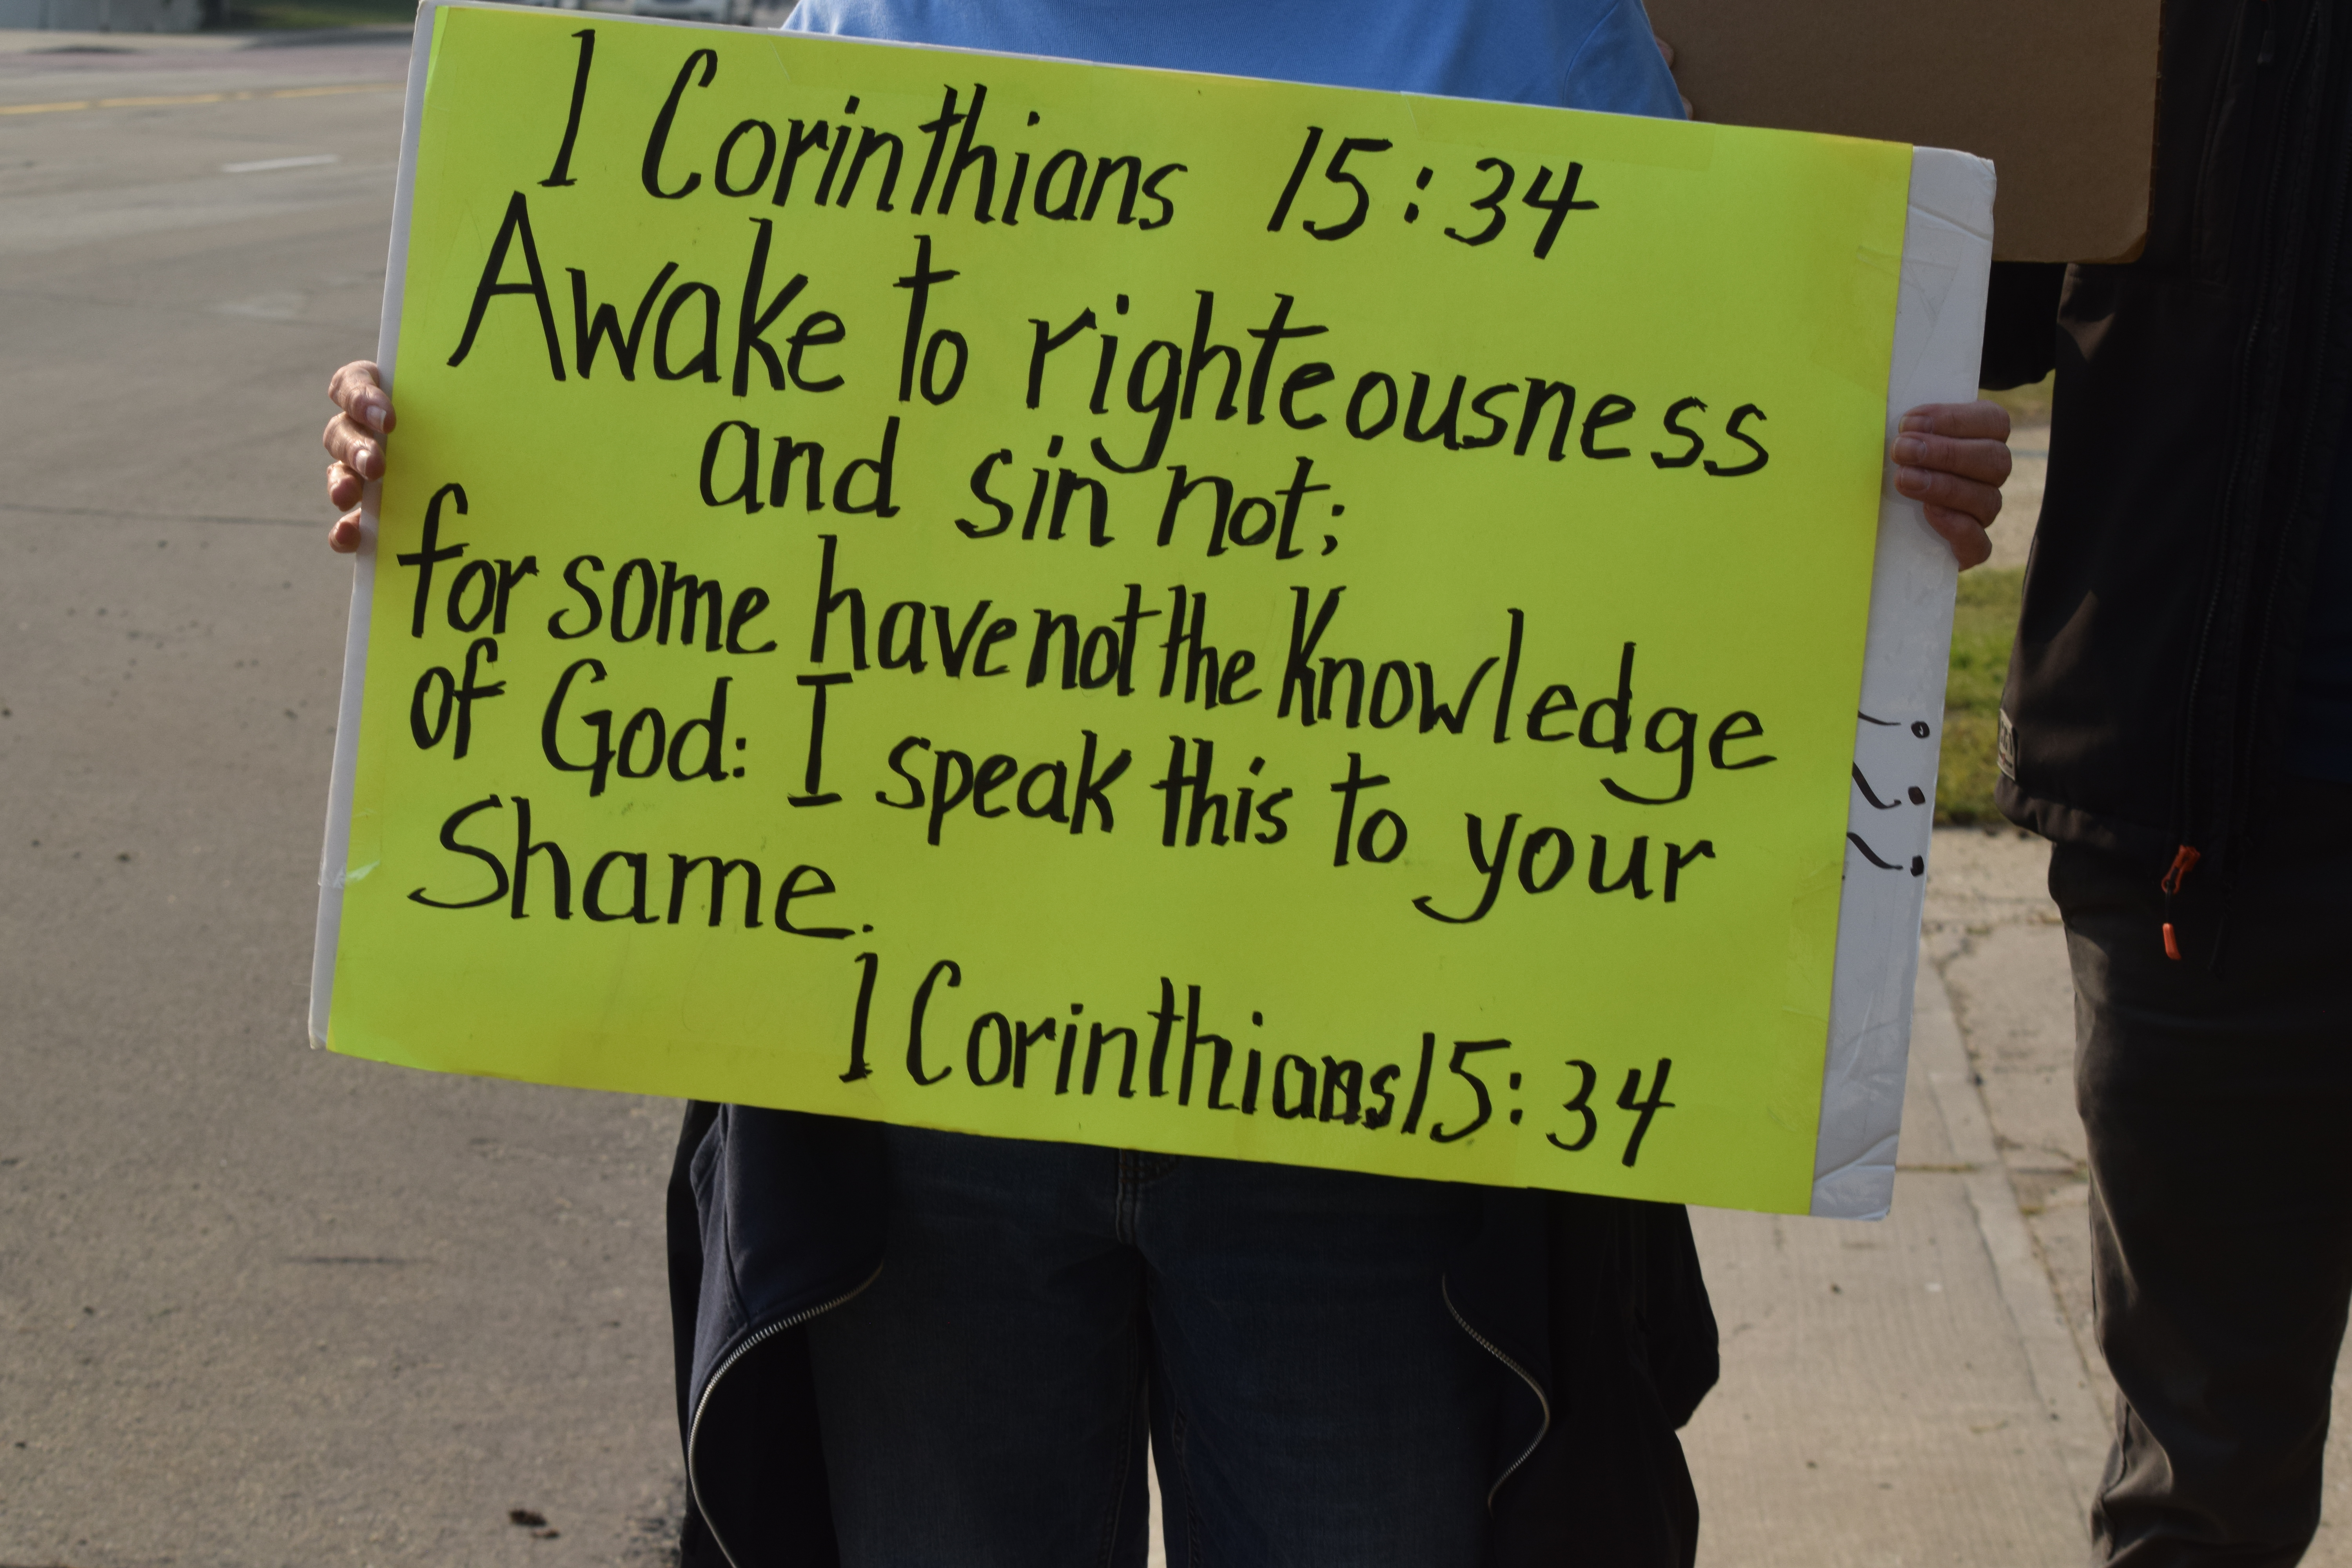 1 Corinthians 15:34
Awake to righteousness
and sin not;
for some have not the knowledge
of God: I speak this to your
Shame.
1 Corinthians 15:34